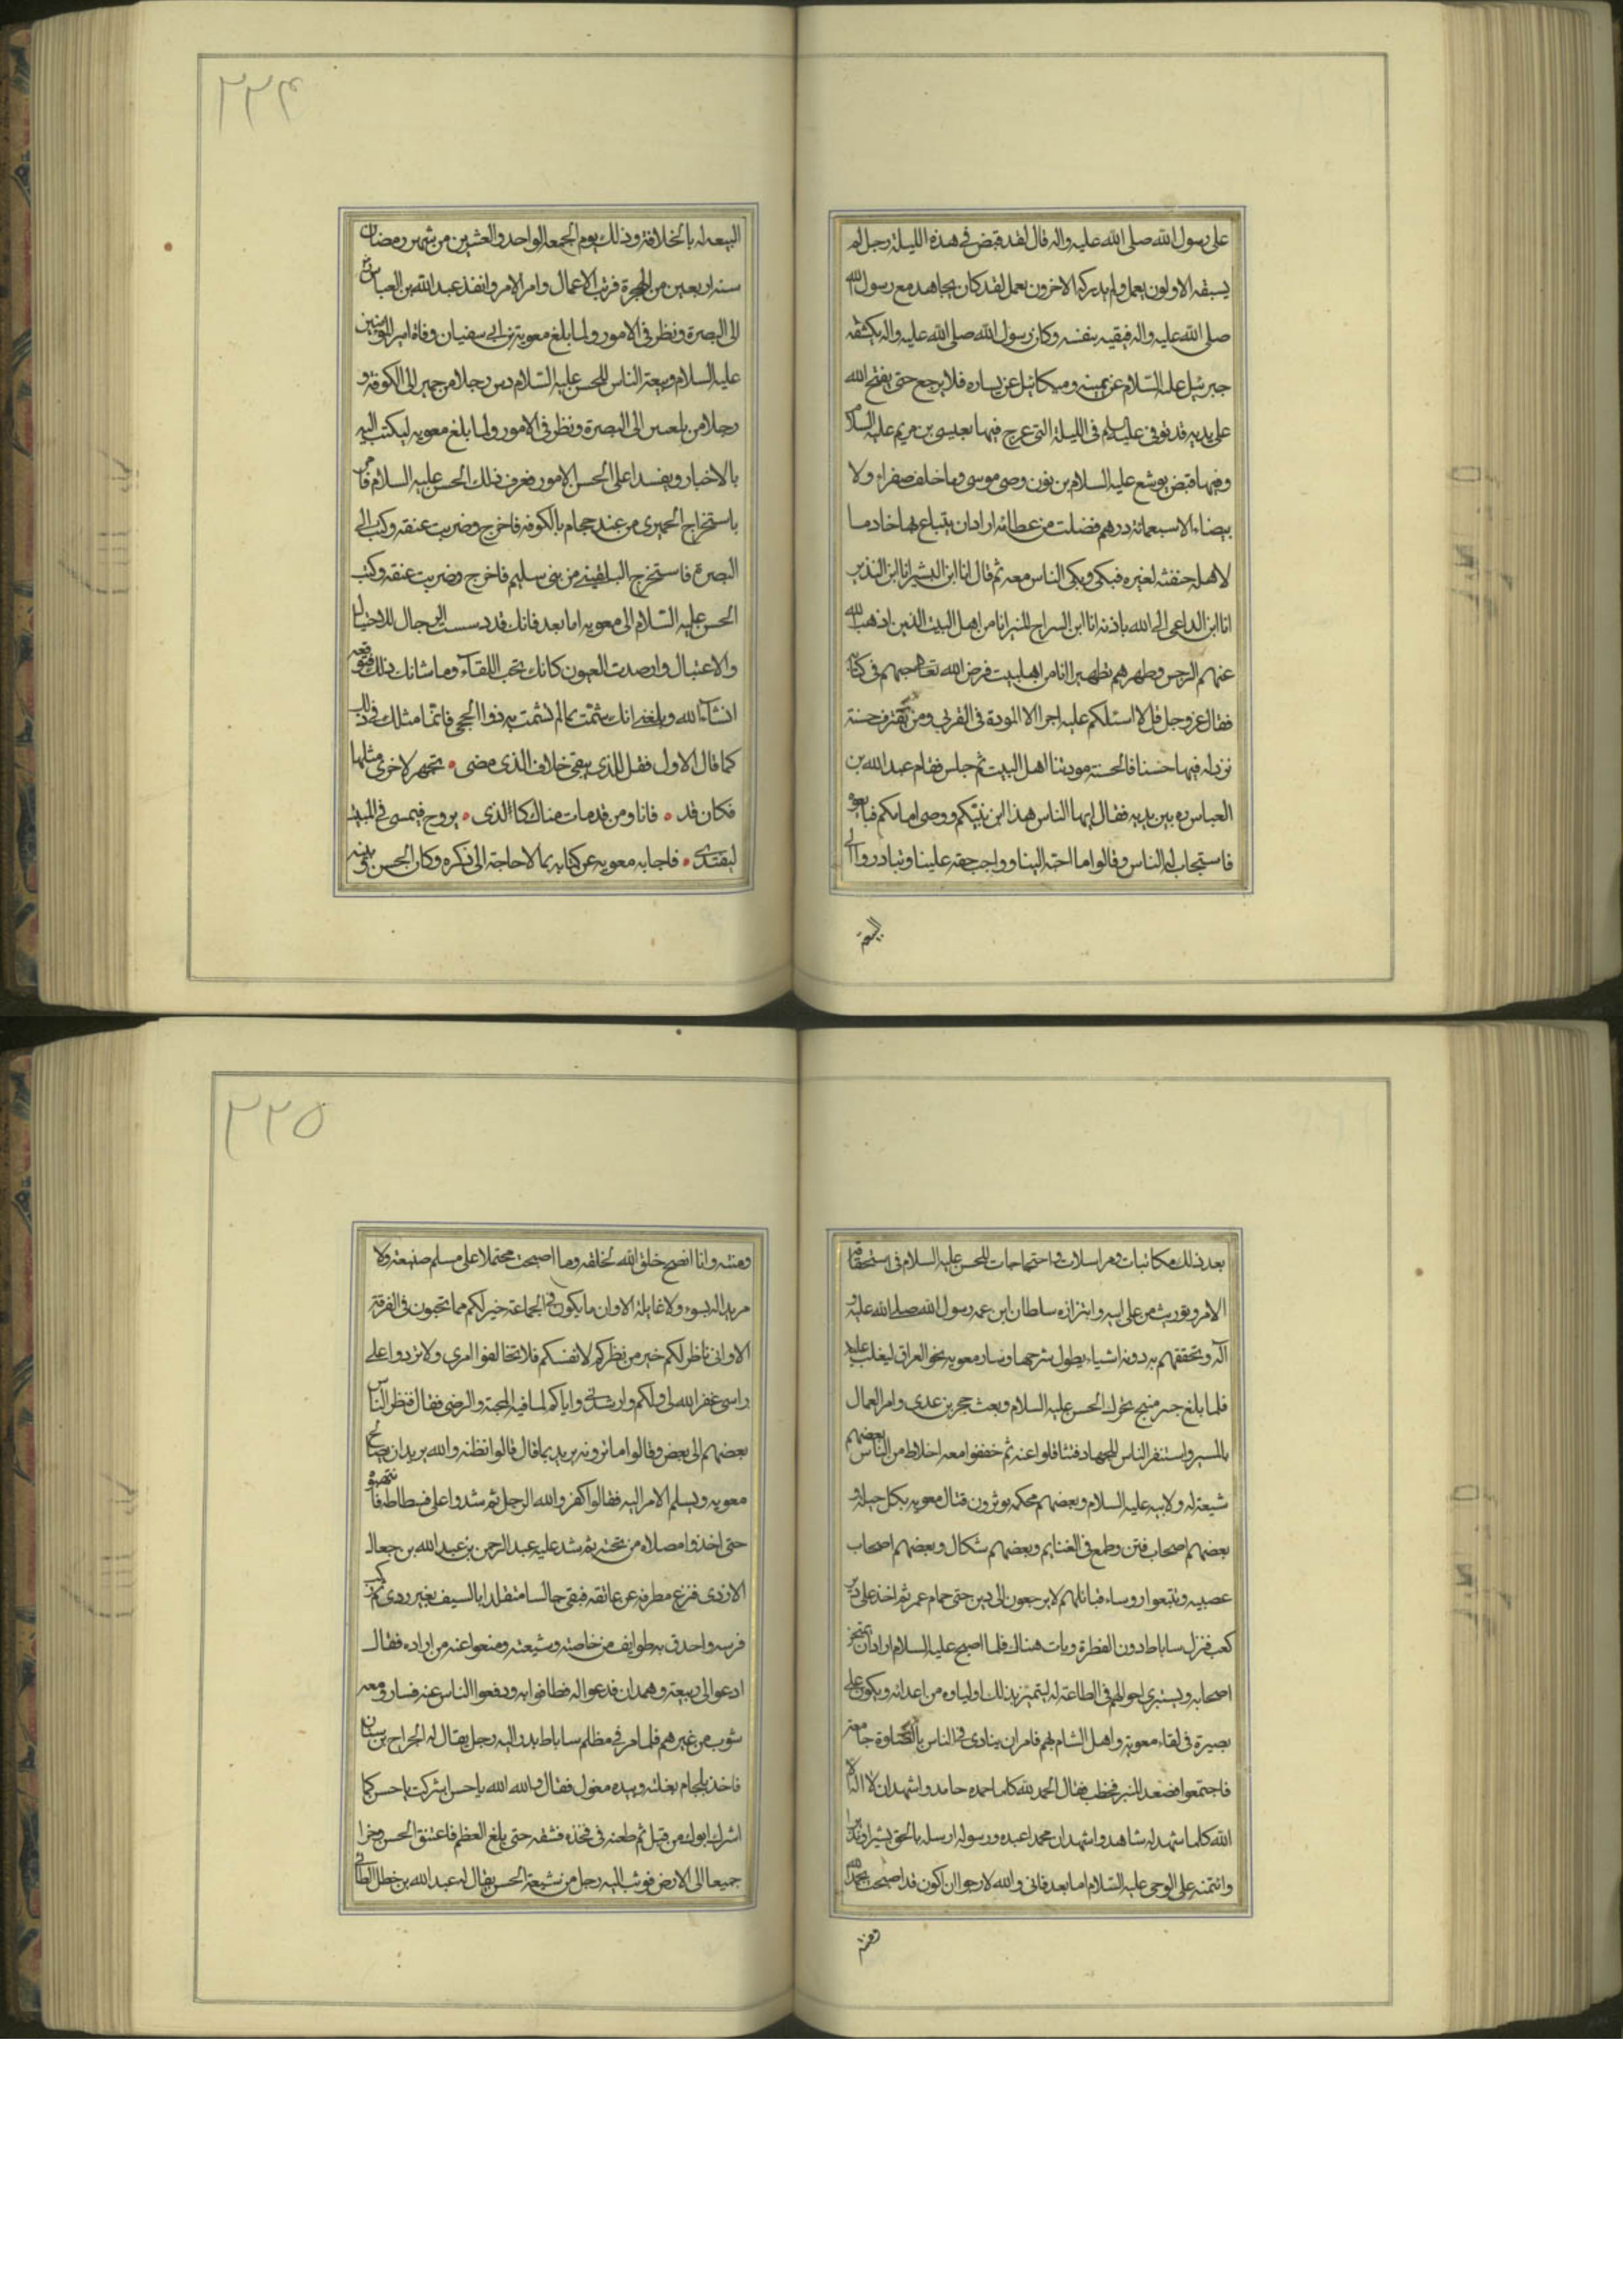 على رسول الله صلى الله عليه واله قال لقد قبض في هذه الليلة رجل لم
يسبقه الاولون بعمل ولم يدركه الاخرون بعمل لقد كان يجاهد مع رسول الله
صلى الله عليه واله فيقيه بنفسه وكان رسول الله صلى الله عليه واله يكنفه
جبرئيل عليه السلام عن يمينه وميكائيل عن يساره فلا يرجع حتى يفتح الله
على يديه قد توفى عليه السلام فى الليلة التى عرج فيها بعيسى بن مريم عليه السلام
وفيها قبض يوشع عليه السلام بن نون وصى موسى وما خلف صفراء ولا
بيضاء الا سبعمائة درهم فضلت من عطائه اراد ان يبتاع بها خادما
لاهله خنقته العبرة فبكى وبكى الناس معه ثم قال انا ابن البشير انا ابن النذير
انا ابن الداعى الى الله باذنه انا ابن السراج المنير انا من اهل البيت الذين اذهب الله
عنهم الرجس وطهرهم تطهيرا انا من اهلبيت فرض الله تعا حبهم فى كتابه
فقال عز وجل قل لا اسئلكم عليه اجرا الا المودة فى القربى ومن يقترف حسنة
نزد له فيها حسنا فالحسنة مودتنا اهل البيت ثم جلس فقام عبد الله بن
العباس ره بين يديه فقال ايها الناس هذا ابن نبيكم ووصى امامكم فبايعوه
فاستجاب له الناس وقالوا ما احبه الينا واوجب حقه علينا وتبادروا الى
البيعة
٢٢٤
البيعه له بالخلافة وذلك يوم الجمعه الواحد والعشرين من شهر رمضان
سنه اربعين من الهجرة فرتب الاعمال وامر الامر وانفذ عبد الله بن العباس
الى البصرة ونظر فى الامور ولما بلغ معوية بن ابى سفيان وفاة امير المؤمنين
عليه السلام وبيعة الناس للحسن عليه السلام دس رجلا من حمير الى الكوفة و
رجلا من بلعين الى البصرة ونظر فى الامور ولما بلغ معويه ليكتب اليه
بالاخبار ويفسدا على الحسن الامور فعرف ذلك الحسن عليه السلام فامر
باستخراج الحميرى من عند حجام بالكوفه فاخرج وضربت عنقه وكتب الى
البصرة فاستخرج البلقينى من بنى سليم فاخرج وضربت عنقه وكتب
الحسن عليه السلام الى معويه اما بعد فانك قد دسست الرجال للاحتيال
والاغتيال وارصدت العيون كانك تحب اللقاء وما شانك ذلك فتوقعه
انشاء الله وبلغنى انك شمت بما لم تشمت به ذوا الحجى فانما مثلك فى ذلك
كما قال الاول فقل للذى يبقى خلاف الذى مضى تجهز لاخرى مثلها
فكان قد فانا ومن قد مات مناك كالذى يروح فيمسى فى المبيت
ليغتدى فاجابه معويه عن كتابه بما لا حاجة الى ذكره وكان الحسن بينه
بعد ذلك مكاتبات ومراسلات واحتجاجات للحسن عليه السلام فى استحقاقه
الامر وتورث من على ابيه وابتزازه سلطان ابن عمه رسول الله صلى الله عليه و
آله وتحققهم به دونه اشياء يطول شرحها وسار معويه نحو العراق ليغلب عليه
فلما بلغ جسر منبج تحرك الحسن عليه السلام وبعث حجر بن عدى وامر العمال
بالمسير واستنفر الناس للجهاد فتثاقلوا عنه ثم خففوا معه اخلاط من الناس بعضهم
شيعة له ولابيه عليه السلام وبعضهم محكمه يوثرون قتال معويه بكل حيلة و
بعضهم اصحاب فتن وطمع فى الغنايم وبعضهم شكال وبعضهم اصحاب
عصبيه وتتبعوا روساء قبائلهم لا يرجعون الى دين حتى حمام عمر ثم اخذ على دير
كعب فنزل ساباط دون القطرة وبات هناك فلما اصبح عليه السلام اراد ان يمتحن
اصحابه ويستبرى احوالهم فى الطاعة له ليتميز بذلك اولياوه من اعدائه ويكون على
بصيرة فى لقاء معوية واهل الشام بهم فامر ان ينادى فى الناس بالصلوة جامعة
فاجتمعوا فصعد المنبر فخطب فقال الحمد لله كلما حمده حامد واشهد ان لا اله الا
الله كلما شهد له شاهد واشهد ان محمدا عبده ورسوله ارسله بالحق بشيرا ونذيرا
وائتمنه على الوحى عليه السلام اما بعد فانى والله لارجوا ان اكون قد اصبحت بحمد الله
ومنه
٢٢٥
ومنه وانا انصح خلق الله لخلقه وما اصبحت محتملا على مسلم ضغينة ولا
مريدا له بسوء ولا غايلة الا وان ما يكون فى الجماعة خير لكم مما تحبون فى الفرقة
الا وانى ناظر لكم خير من نظركم لانفسكم فلا تخالفوا امرى ولا تردوا على
راسى غفر الله لى ولكم وارشدنى واياكم لما فيه المحبة والرضى فقال فنظر الناس
بعضهم الى بعض وقالوا ما ترونه يريد بما قال قالوا نظنه والله يريد ان يصالح
معويه ويسلم الامر اليه فقالوا كفر والله الرجل ثم شدوا على فسطاطه فانتهبوه
حتى اخذوا مصلاه من تحته ثم شد عليه عبد الرحمن بن عبد الله بن جعال
الازدى فنزع مطرفه عن عاتقه فبقى جالسا متقلدا بالسيف بغير ردى ثم ركب
فرسه واحدق به طوايف من خاصته وشيعته ومنعوا عنه من اراده فقال
ادعوا لى ربيعة وهمدان فدعوا له فطافوا به ودفعوا الناس عنه فسار ومعه
شوب من غيرهم فلما مر فى مظلم ساباط بدر اليه رجل يقال له الجراح بن سنان
فاخذ بلجام بغلته وبيده مغول فقال والله الله يا حسن اشركت يا حسن كما
اشرك ابوك من قبل ثم طعنه فى فخذه فشقه حتى بلغ العظم فاعتنق الحسن وخرا
جميعا الى الارض فوثب اليه رجل من شيعة الحسن يقال له عبد الله بن خطل الطائى